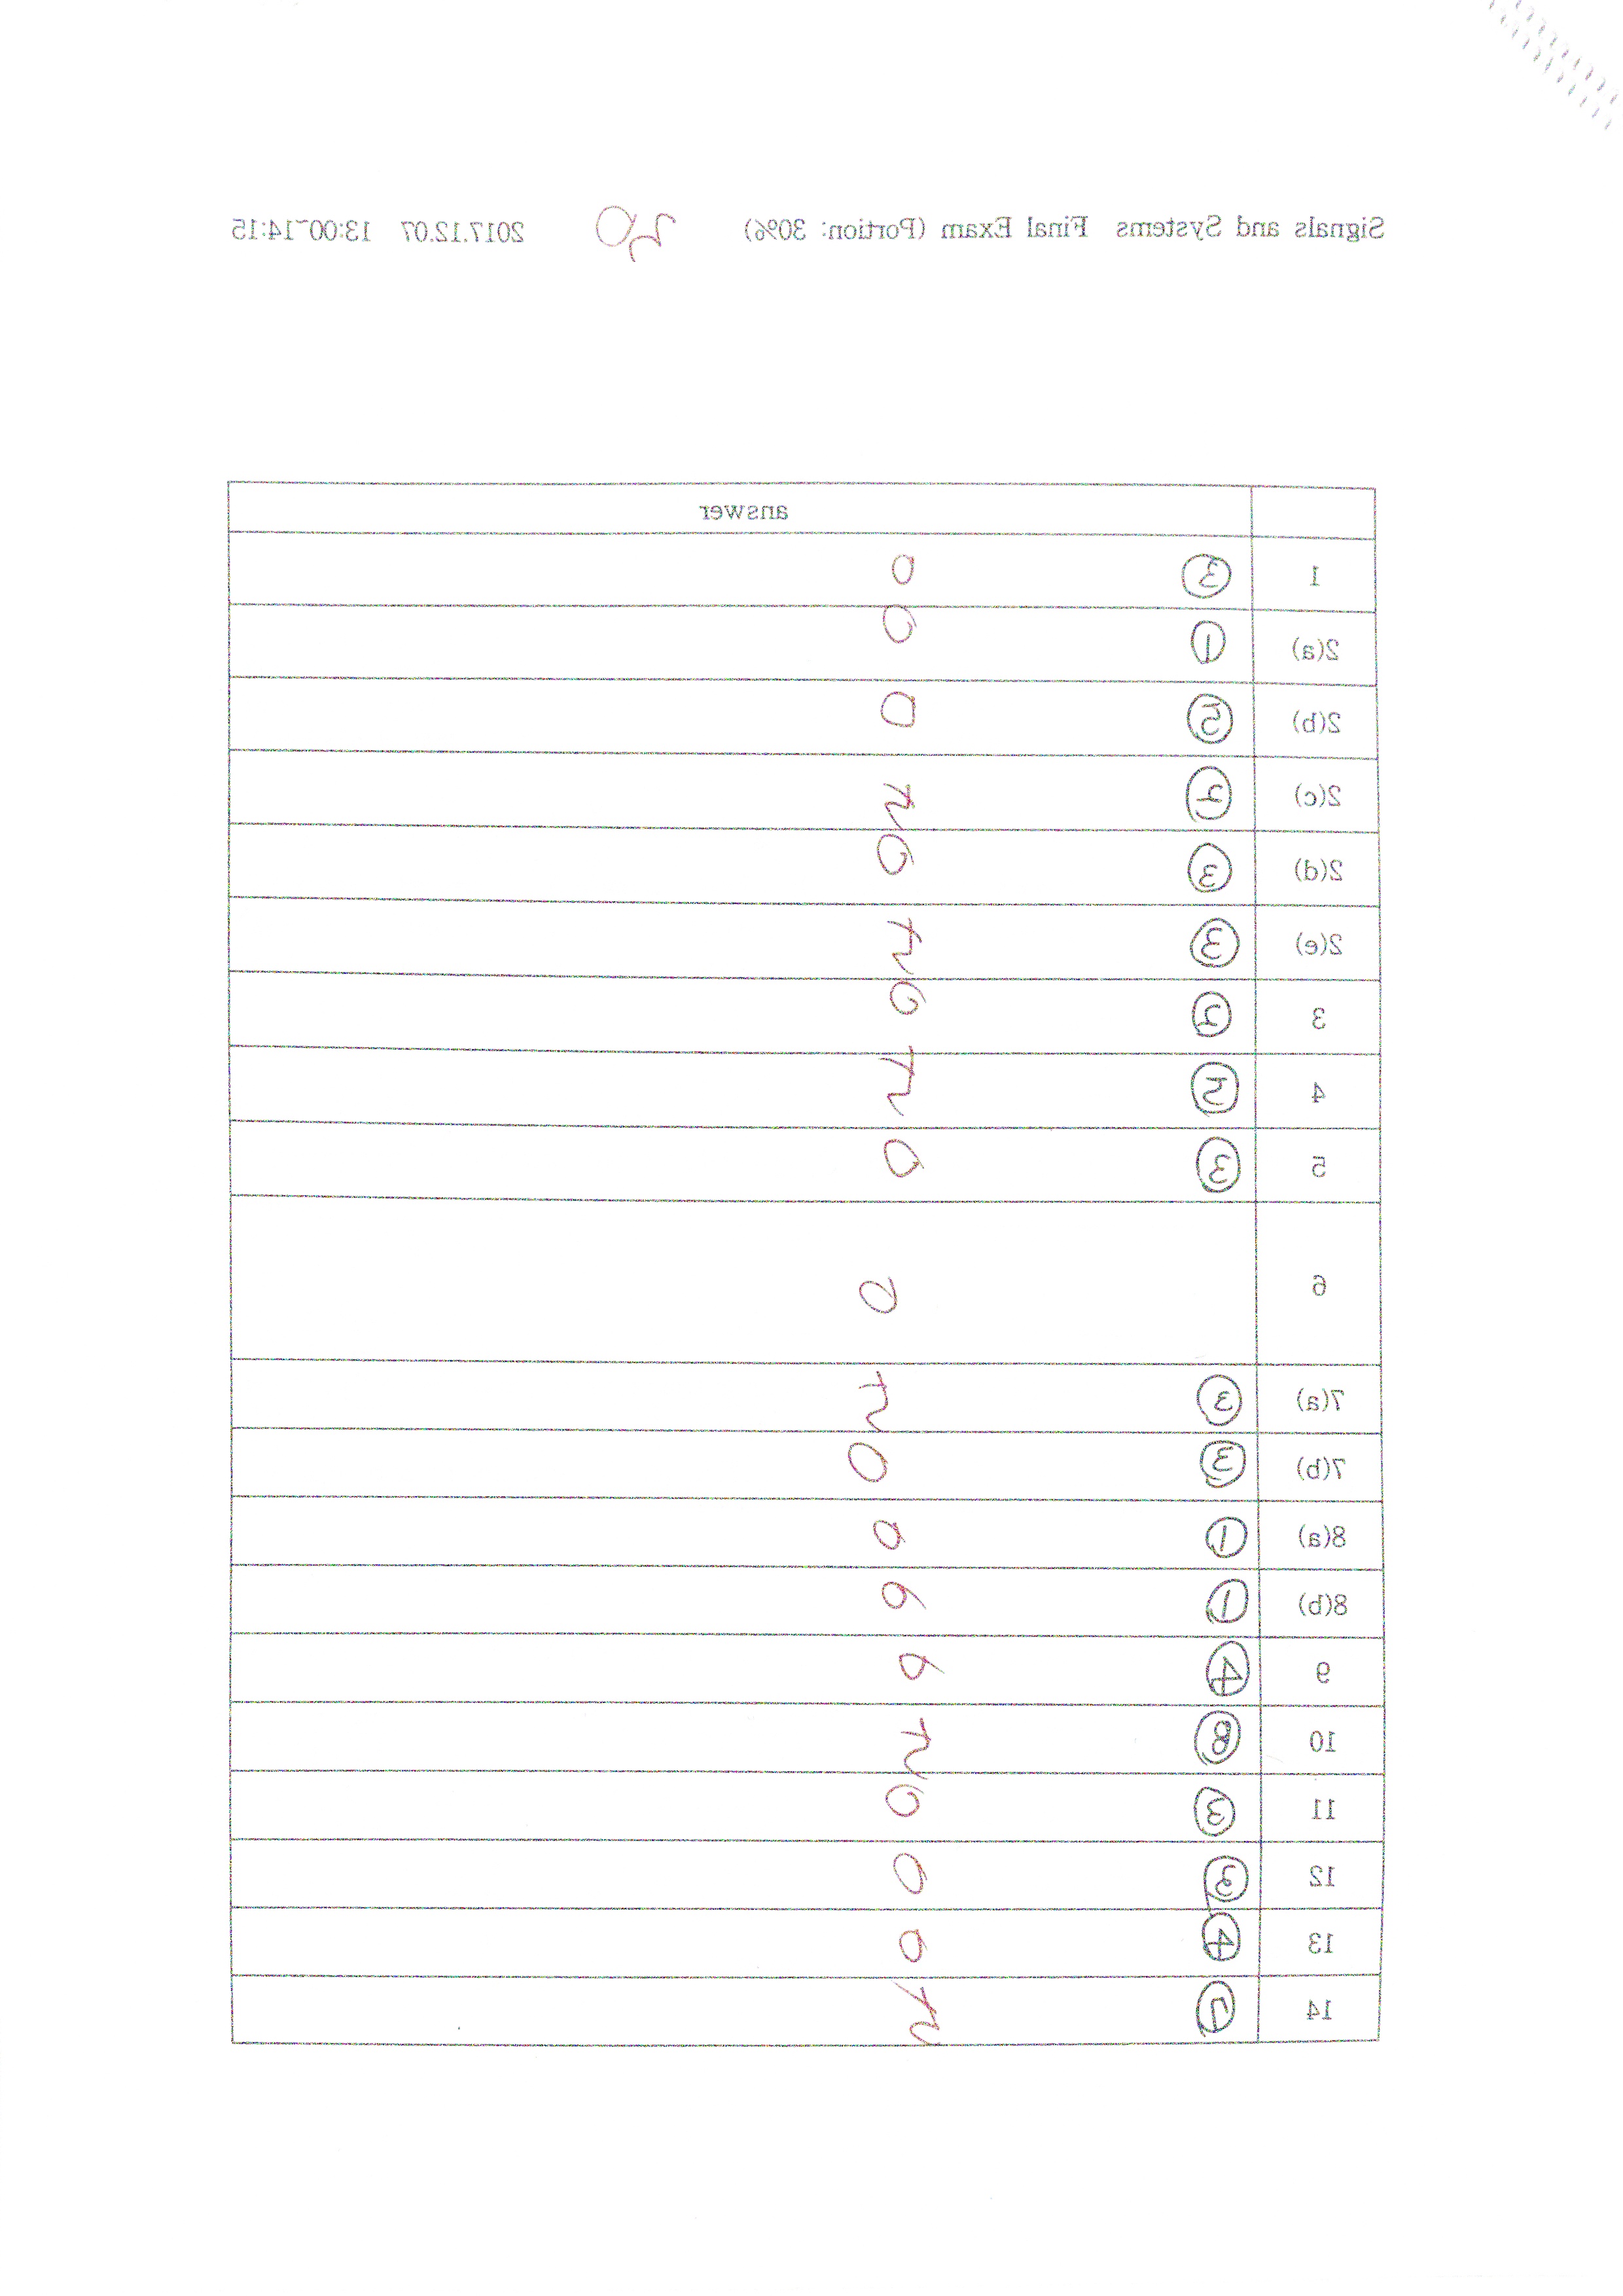 Signals and Systems Final Exam (Portion: 30%) 2017.12.07 13:00~14:15
answer
1 ③ 0
2(a) ① 0
2(b) ⑤ 0
2(c) ② 5
2(d) ③ 0
2(e) ③ 5
3 ② 0
4 ⑤ 5
5 ③ 0
6 0
7(a) ③ 5
7(b) ③ 0
8(a) ① 0
8(b) ① 0
9 ④ 0
10 ⑧ 5
11 ③ 0
12 ③ 0
13 ④ 0
14 5